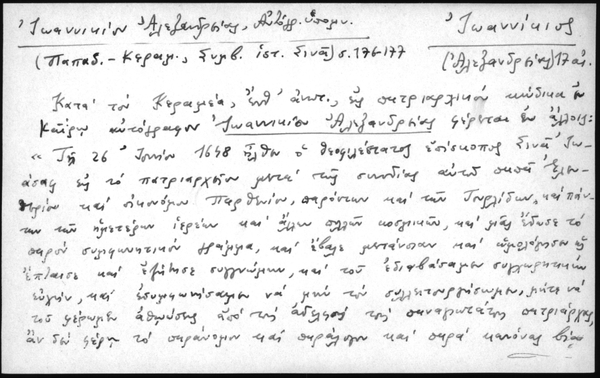 Ἰωαννικίου Ἀλεξανδρείας, Αὐτόγρ. ὑπόμν.
Ἰωαννίκιος
(Παπαδ.-Κεραμ., Συμβ. ἱστ. Σινᾶ) σ. 176-177
(Ἀλεξανδρείας) 17 αἰ.
Κατὰ τὸν Κεραμέα, ἔνθ' ἀνωτ., εἰς πατριαρχικὸν κώδικα ἐν
Καΐρῳ αὐτόγραφον Ἰωαννικίου Ἀλεξανδρείας φέρεται ἐν ἄλλοις:
« Τῇ 26 Ἰουνίου 1648 ἦλθεν ὁ θεοφιλέστατος ἐπίσκοπος Σινᾶ Ἰω-
άσαφ εἰς τὸ πατριαρχεῖον μετὰ τῆς συνοδίας αὐτοῦ παπᾶ Ἐλευ-
θερίου καὶ οἰκονόμου Παρθενίου, παρόντων καὶ τῶν Τουρλίδων, καὶ πάν-
των τῶν ἡμετέρων ἱερέων καὶ ἄλλων πολλῶν κοσμικῶν, καὶ μᾶς ἔδωσε τὸ
παρὸν συμφωνητικὸν γράμμα, καὶ ἔβαλε μετάνοιαν καὶ ὡμολόγησεν ὅτι
ἔπταισε καὶ ἐζήτησε συγγνώμην, καὶ τοῦ ἐδιαβάσαμεν συγχωρητικὴν
εὐχήν, καὶ ἐσυμφωνήσαμεν νὰ μὴν τὸ συλλειτουργήσωμεν, μήτε νὰ
τοῦ φέρωμεν ἀθώωσις ἀπὸ τῆς ἀδελφῆς τῆς παναγιωτάτης πατριάρχης,
ἂν δὲν φέρῃ τὸ παράνομον καὶ παράλογον καὶ παρὰ κανόνας